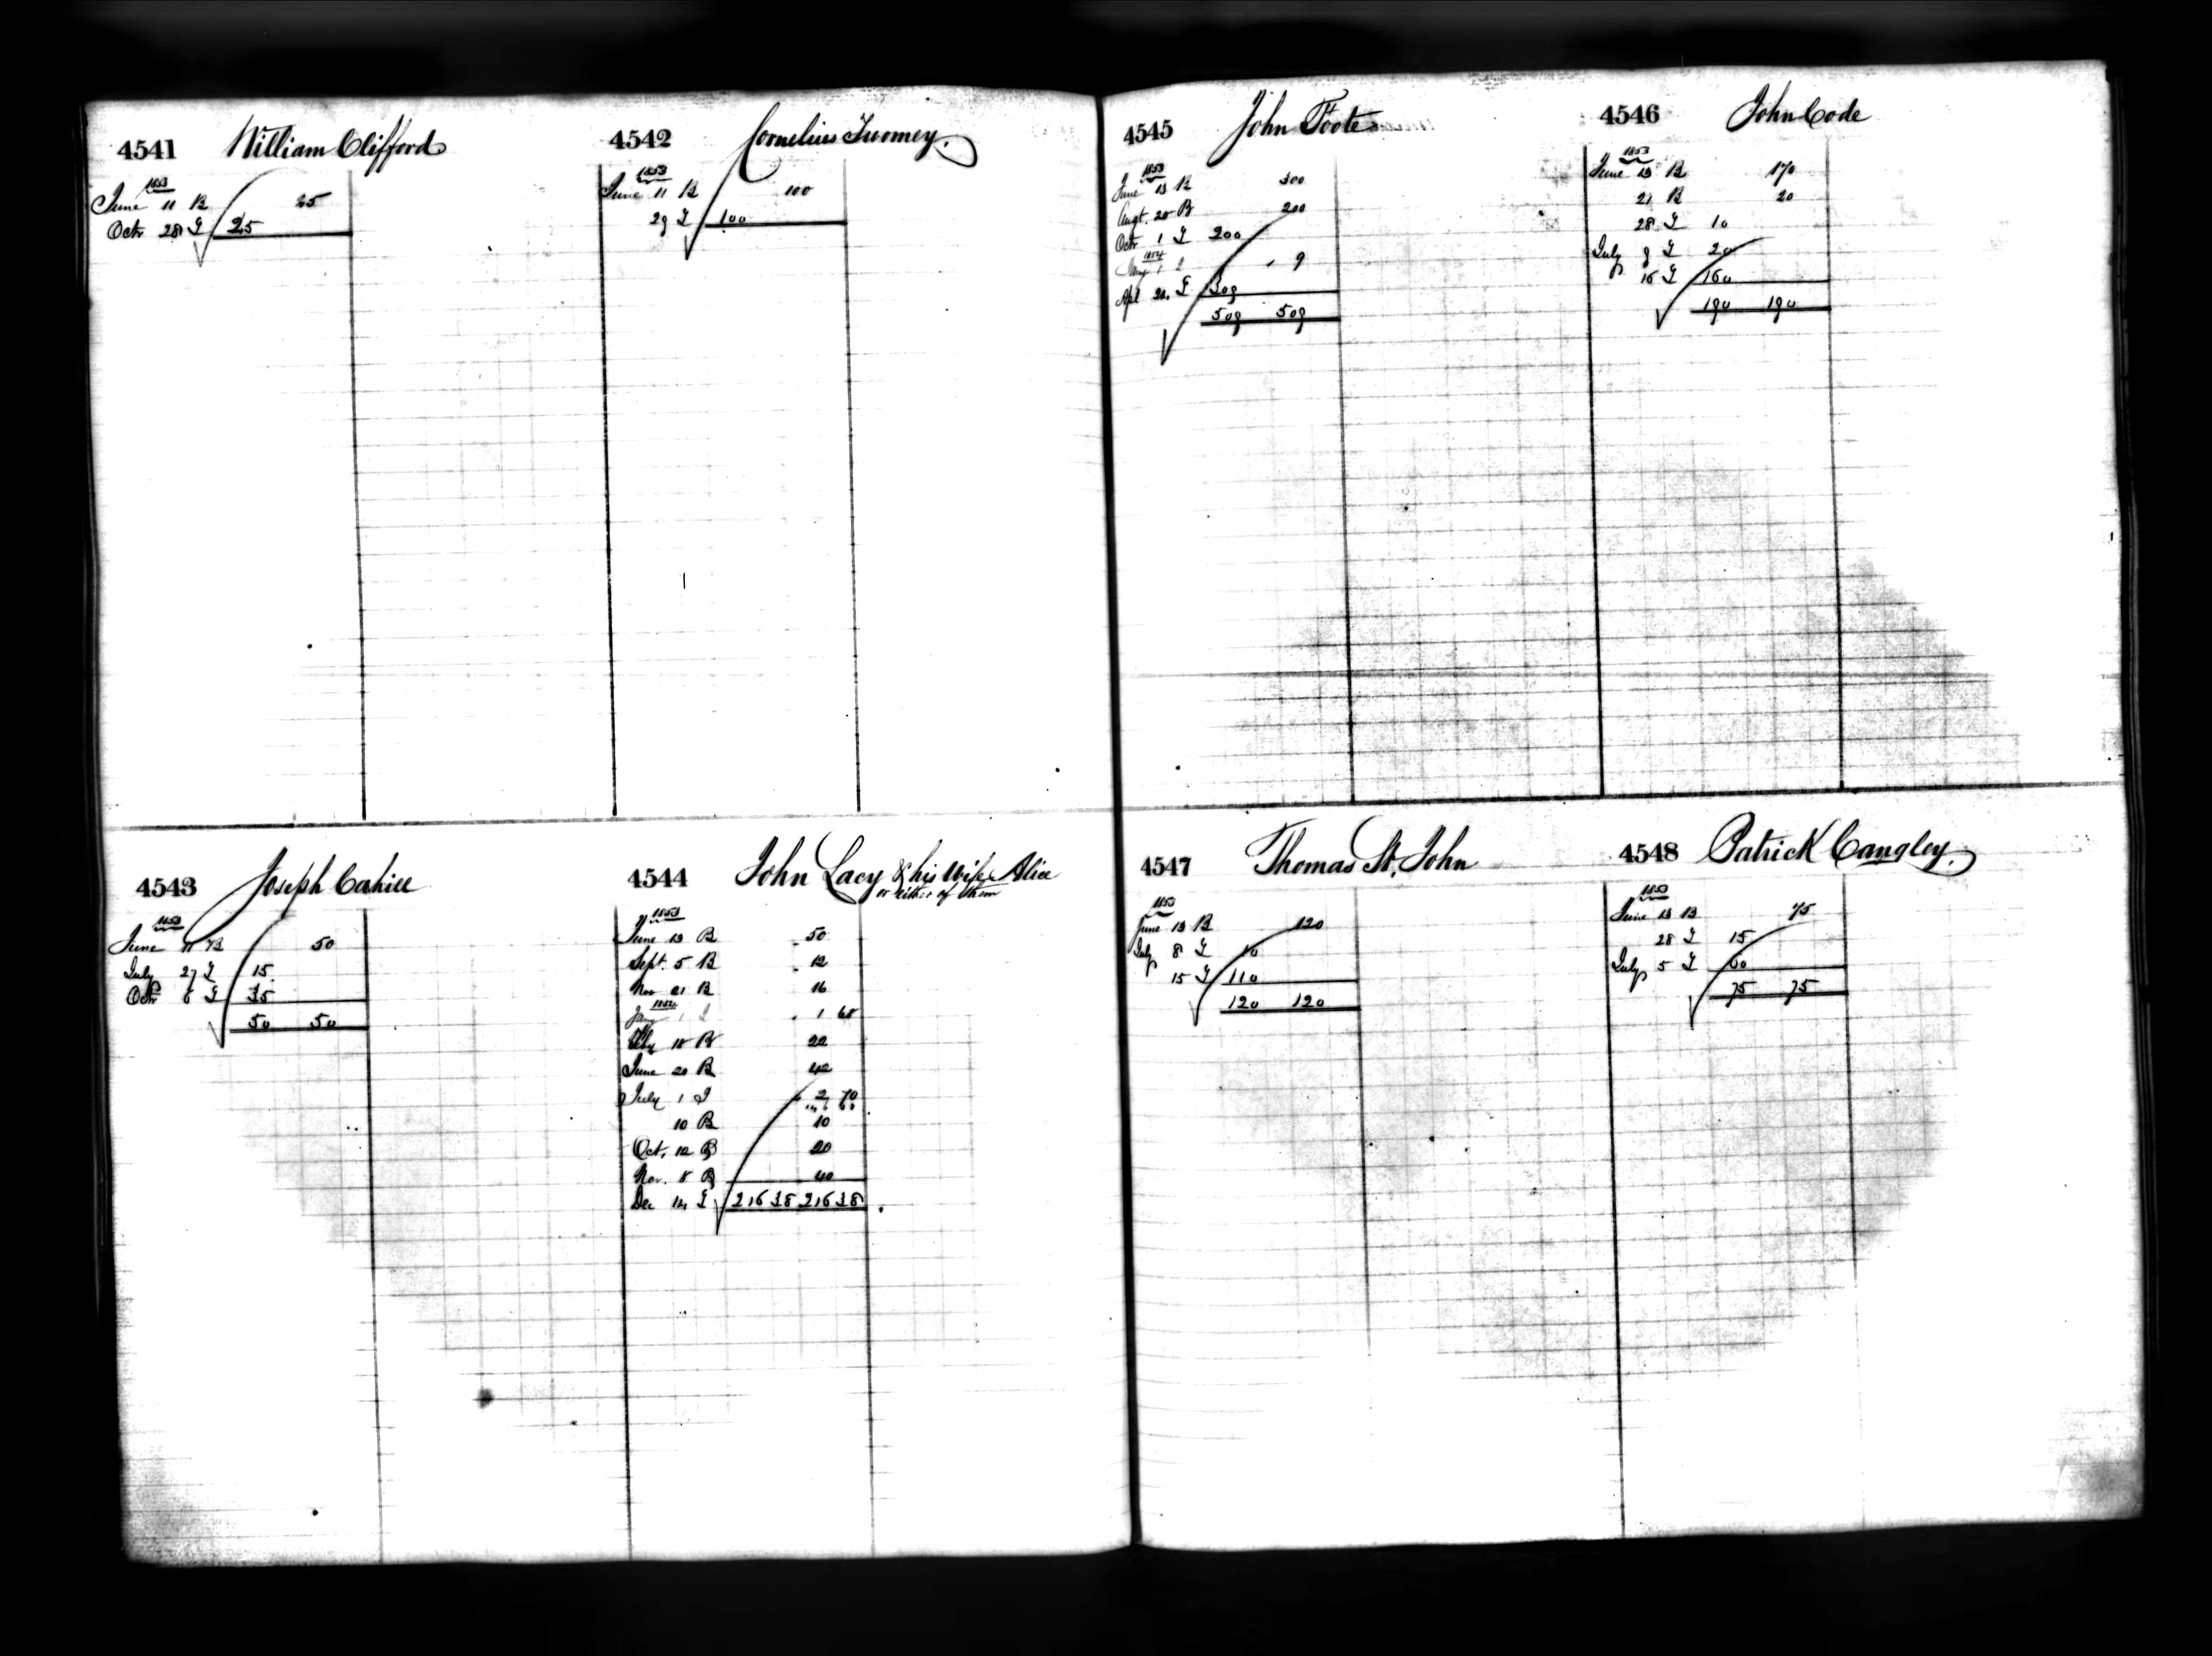 4541 William Clifford
1853
June 11 B 25
Octr 28 T 25
4542 Cornelius Twomey.
1853
June 11 B 100
29 T 100
4543 Joseph Cahill
1853
June 11 B 50
July 27 T 15
Octr 6 T 35
50 50
4544 John Lacy & his Wife Alice
or either of them
1853
June 13 B 50
Sept. 5 B 12
Nov 21 B 16
1854
Jany 1 I 1 68
18 B 22
June 20 B 42
July 1 I 2 70
10 B 10
Oct. 12 B 20
Nov. 8 B 40
Dec 14 T 216 38 216 38
4545 John Foote
1853
June 13 B 300
Augt. 20 B 200
Octr 1 T 200
1854
Jany 1 I 9
Apl 20. T 309
509 509
4546 John Code
1853
June 13 B 170
21 B 20
28 T 10
July 9 T 20
16 T 160
190 190
4547 Thomas St. John
1853
June 13 B 120
July 8 T 10
15 T 110
120 120
4548 Patrick Cangley.
1853
June 13 B 75
28 T 15
July 5 T 60
75 75